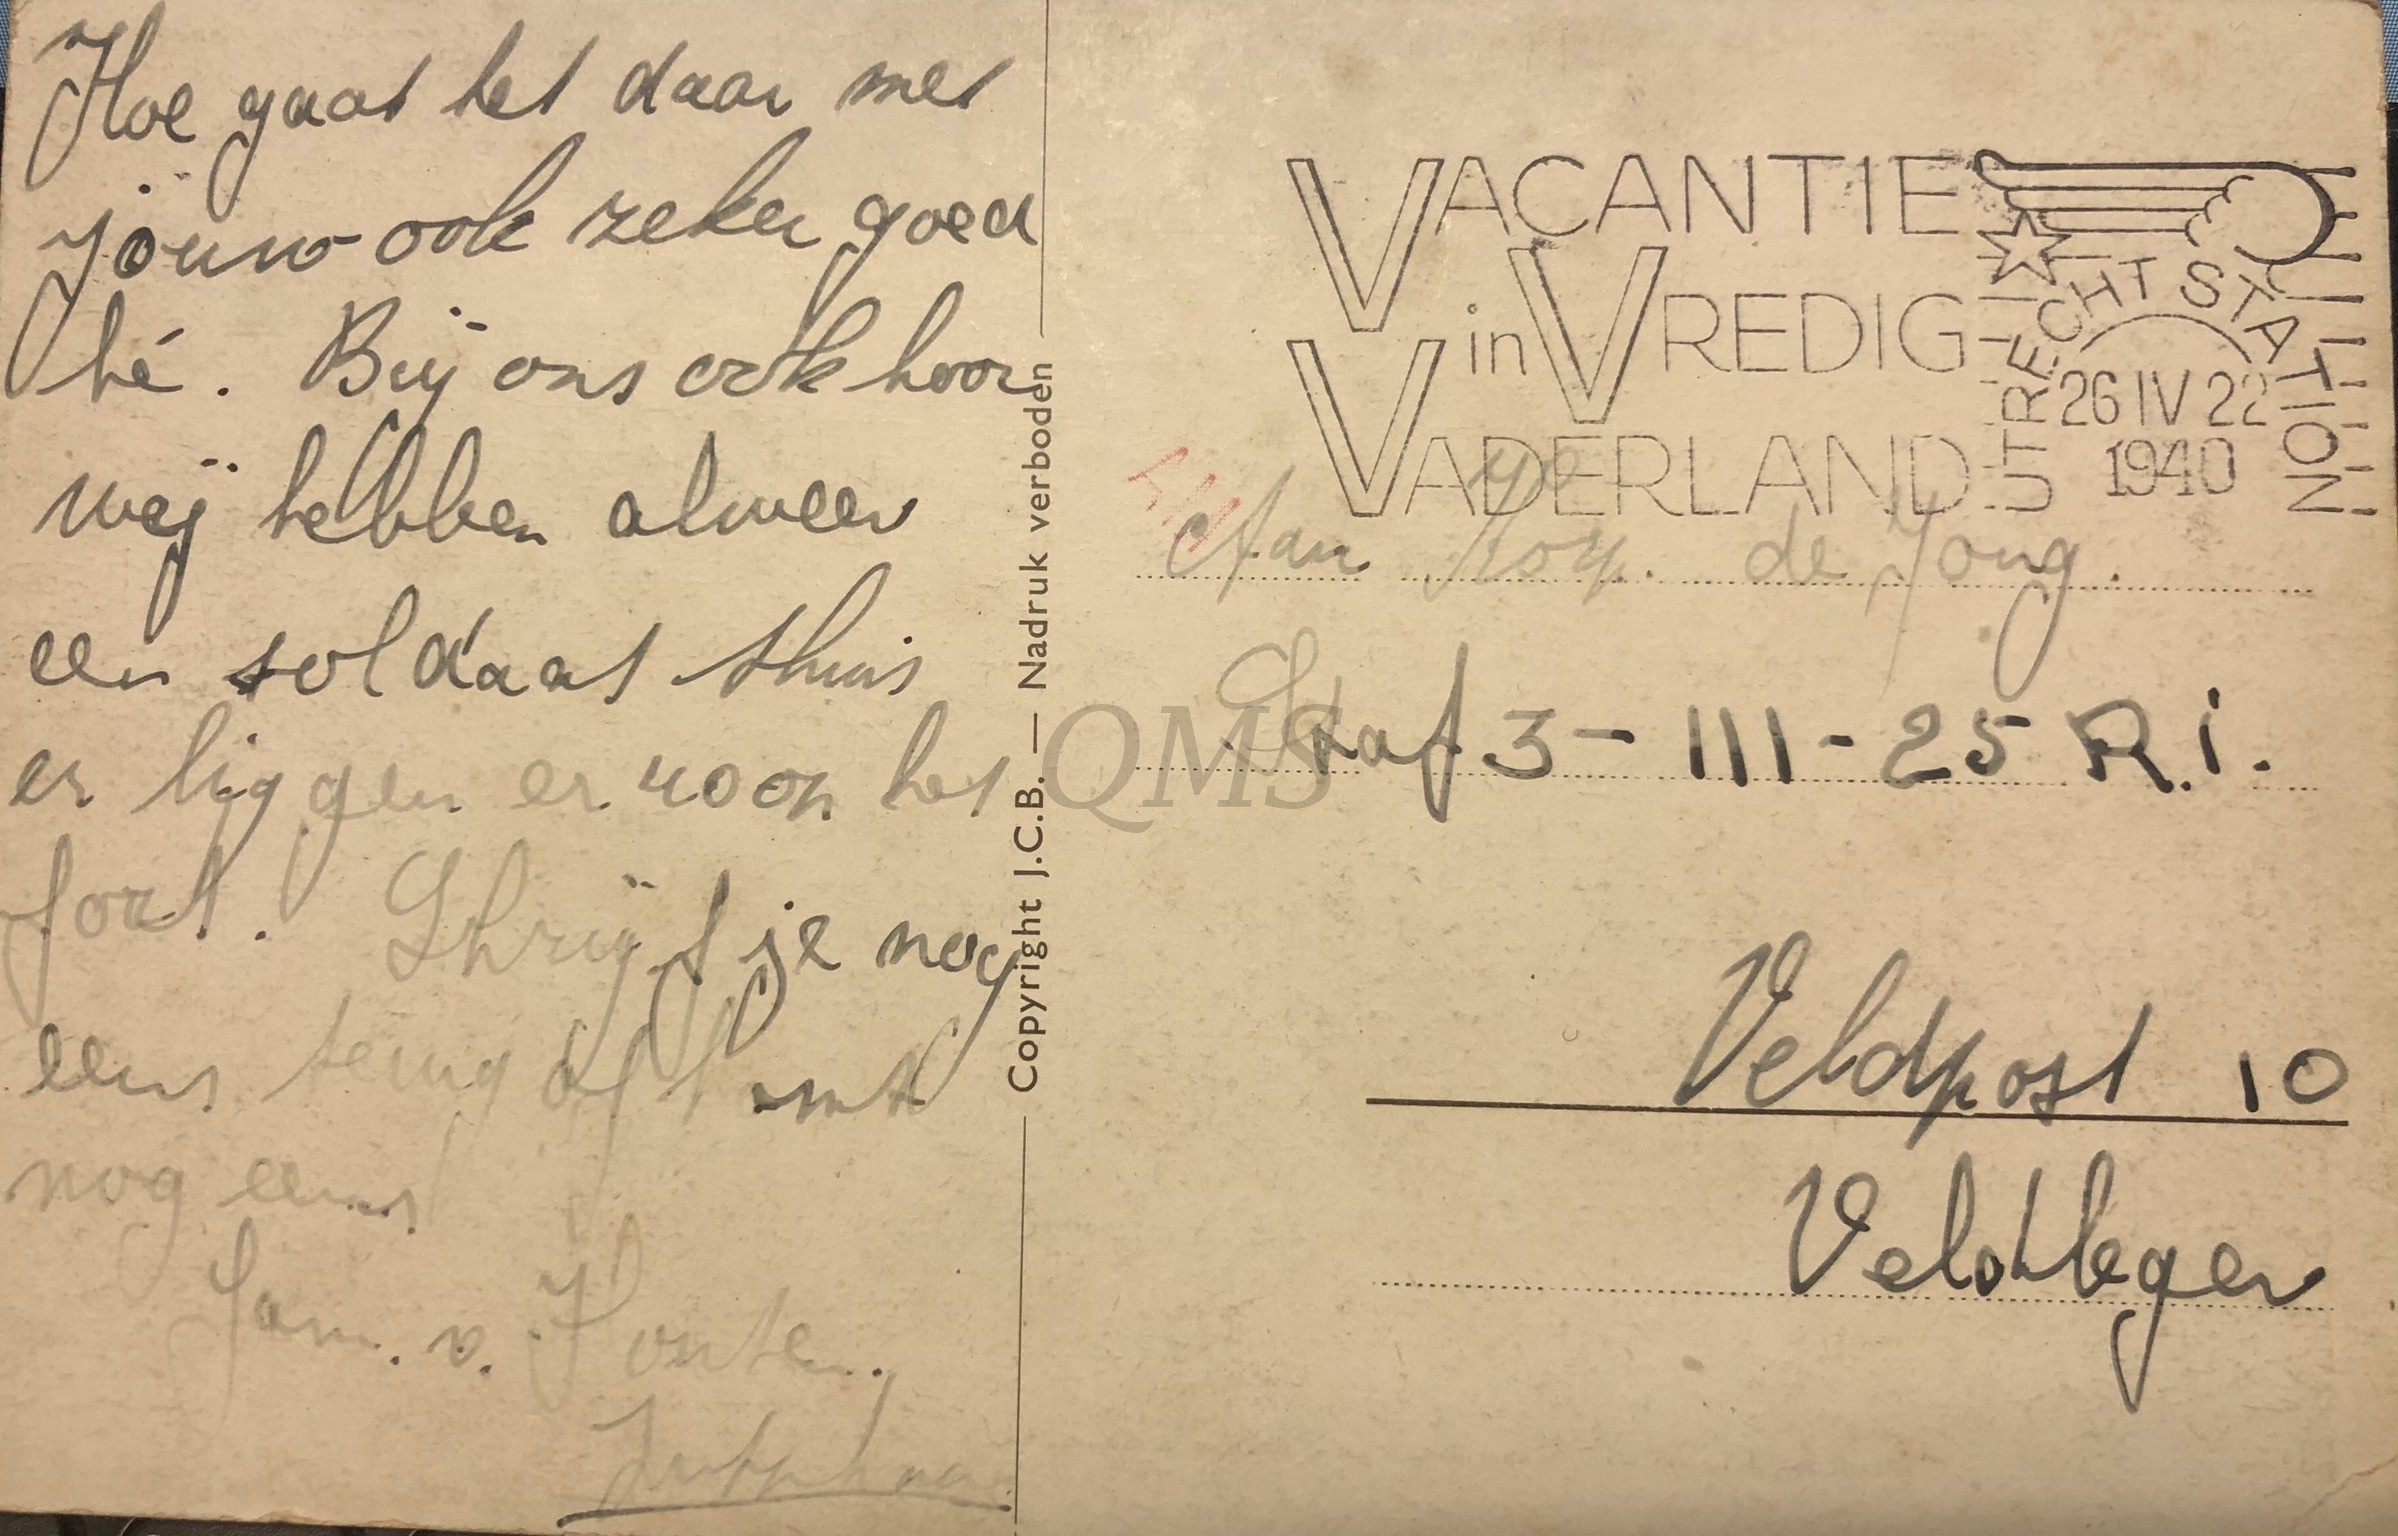 Hoe gaat het daar met
jouw ook zeker goed
hé. Bij ons ook hoor
wej hebben alweer
een soldaat thuis
er liggen er 400 op het
fort. Schrijf je nog
eens terug of komt
nog eens
Fam. v. Houten.
Jutphaas
Copyright J.C.B. — Nadruk verboden
QMS
VACANTIE
in VREDIG
VADERLAND
UTRECHT STATION
26 IV 22
1940
Aan Korp. de Jong.
Staf 3-III-25 R.i.
Veldpost 10
Veldleger